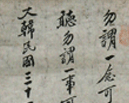 勿謂一念可
聽勿謂一事可
大韓民國三十